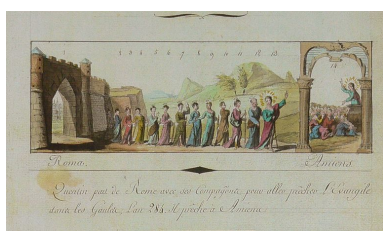 1 3 4 5 6 7 8 9 10 11 12 13
14
Roma. Amiens
Quentin part de Rome avec ses Compagnons pour aller prêcher L'Evangile
dans les Gaules, l'an 285. Il prêche à Amiens.